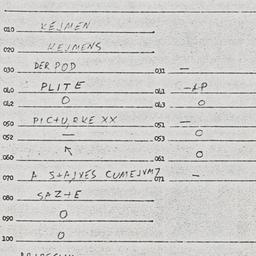 010 KEJMEN
020 KEJMENS
030 DER POD 031 —
040 PLITE 041 -AP
042 O 043 O
050 PICTU,RKE XX 051 —
052 — 053 O
060 061 O
070 A S+AJVES 071 -
080 SAZ+E
090 O
100 O